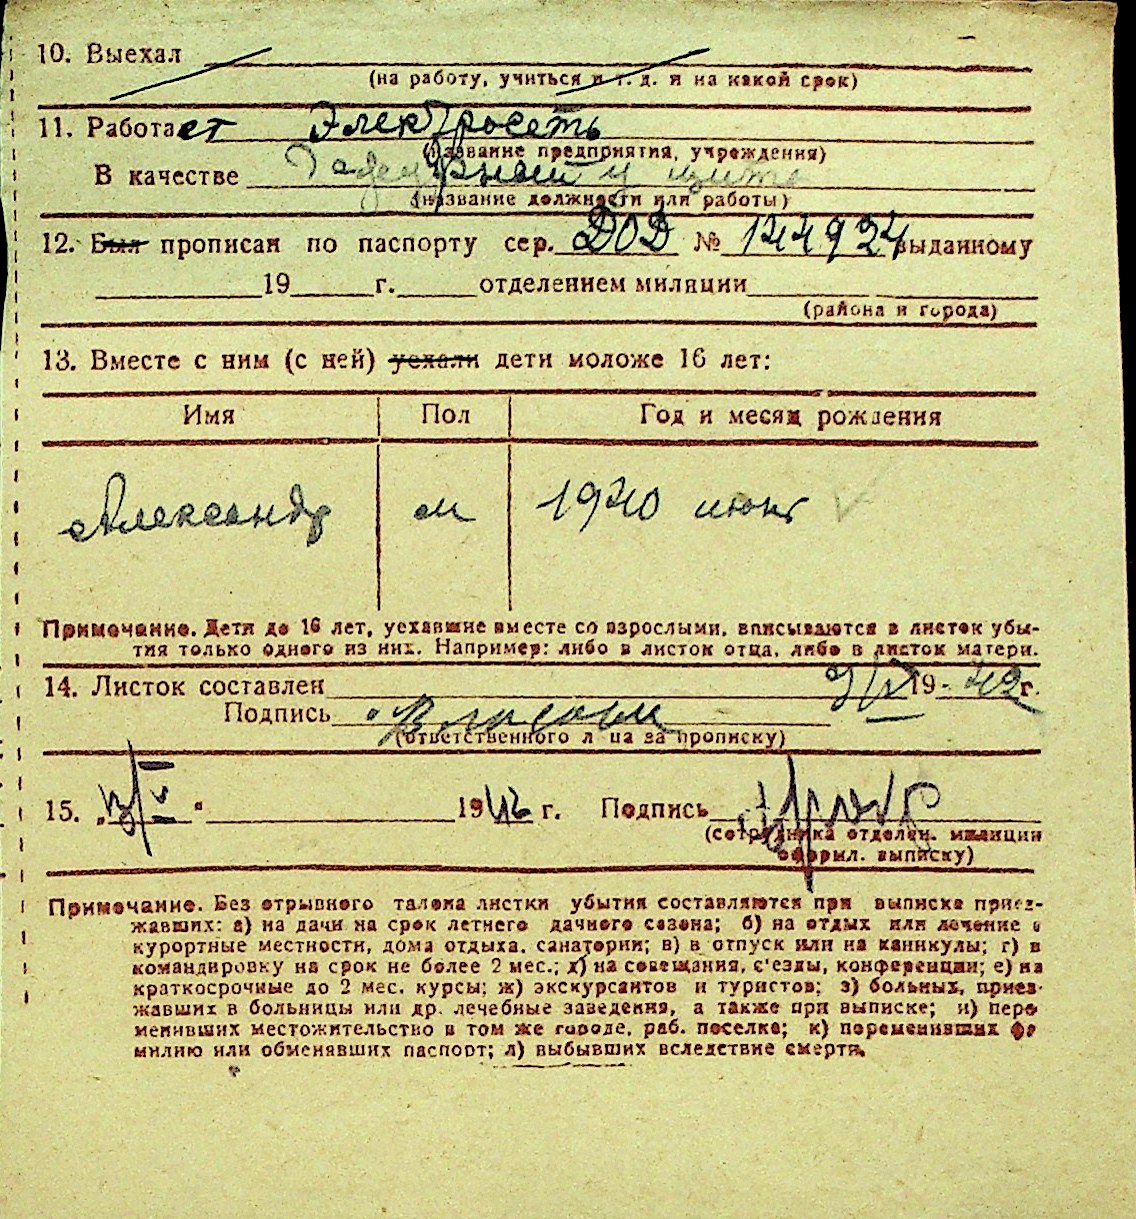 10. Выехал
(на работу, учиться и т. д. и на какой срок)
11. Работает Электросеть
(название предприятия, учреждения)
В качестве Дежурный у щита
(название должности или работы)
12. Был прописан по паспорту сер. ДОД № 144924 выданному
19 г. отделением милиции
(района и города)
13. Вместе с ним (с ней) уехали дети моложе 16 лет:
Имя Пол Год и месяц рождения
Александр м 1940 июнь
Примечание. Дети до 16 лет, уехавшие вместе со взрослыми, вписываются в листок убы-
тия только одного из них. Например: либо в листок отца, либо в листок матери.
14. Листок составлен 19 42 г.
Подпись
(ответственного лица за прописку)
15. " " 1942 г. Подпись
(сотрудника отделен. милиции
оформл. выписку)
Примечание. Без отрывного талона листки убытия составляются при выписке приез-
жавших: а) на дачи на срок летнего дачного сезона; б) на отдых или лечение в
курортные местности, дома отдыха, санатории; в) в отпуск или на каникулы; г) в
командировку на срок не более 2 мес.; д) на совещания, с'езды, конференции; е) на
краткосрочные до 2 мес. курсы; ж) экскурсантов и туристов; з) больных, приез-
жавших в больницы или др. лечебные заведения, а также при выписке; и) пере
менивших местожительство в том же городе, раб. поселке; к) переменивших фа
милию или обменявших паспорт; л) выбывших вследствие смерти.